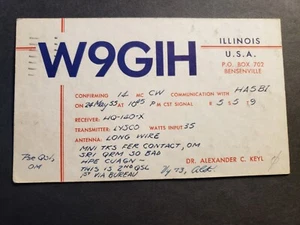 W9GIH
ILLINOIS
U.S.A.
P.O. BOX 702
BENSENVILLE
CONFIRMING 14 MC CW COMMUNICATION WITH HA5BI
ON 24 May 55 AT 1045 P M CST. SIGNAL R 5 S 5 9
RECEIVER: HQ-140-X
TRANSMITTER: LYSCO WATTS INPUT 35
ANTENNA: LONG WIRE
MNI TKS FER CONTACT, OM
SRI QRM SO BAD
HPE CUAGN -
THIS IS 2ND QSL
1ST VIA BUREAU
Pse QSL,
OM
DR. ALEXANDER C. KEYL
Vy 73, Alex